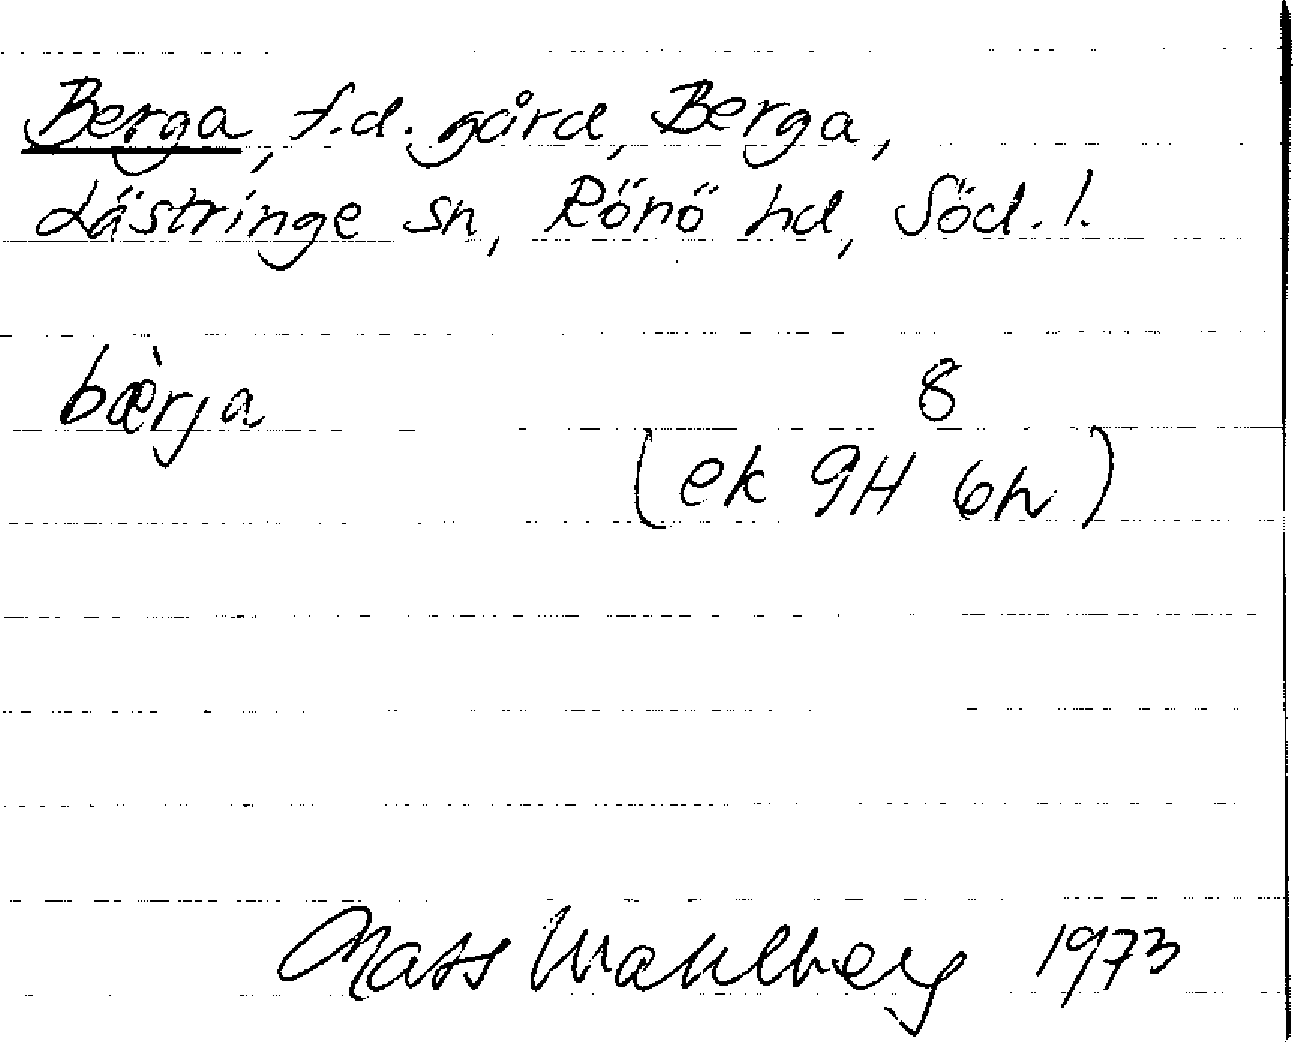 Berga, f.d. gård, Berga,
Lästringe sn, Rönö hd, Söd. l.
bæ̀rja 8
(ek 9H 6h)
Mats Wahlberg 1973